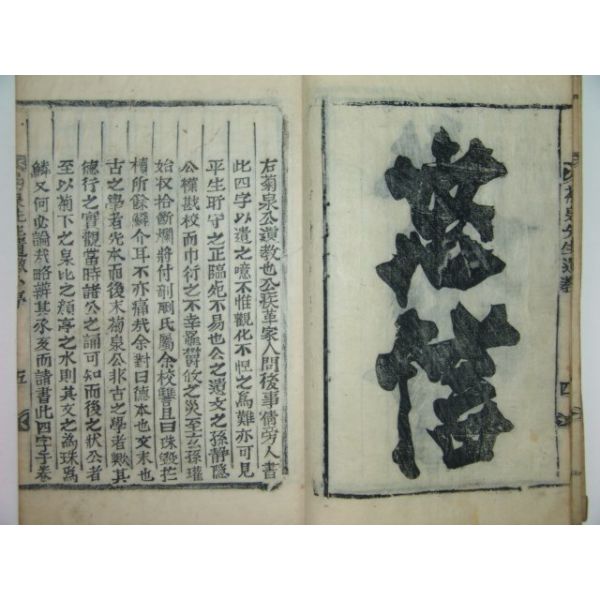 菊泉先生遺教
四
右菊泉公遺教也公疾革家人問後事倩旁人書
此四字以遺之噫不惟觀化不怛之爲難亦可見
平生所守之正臨死不易也公之遺文之孫靜隱
公權戡校而巾衍之不幸爲鬱攸之災至玄孫瓘
始收拾斷爛將付剞劂氏屬余校讎且曰珠璧
櫝所餘鱗介耳不亦痛哉余對曰德本也文末也
古之學者先本而後末菊泉公非古之學者歟其
德行之實觀當時諸公之誦可知而後之狀公者
至以菊下之泉比之潁亭之水則其文之爲珠爲
鱗又何必論哉略辨其豕亥而請書此四字于卷
五